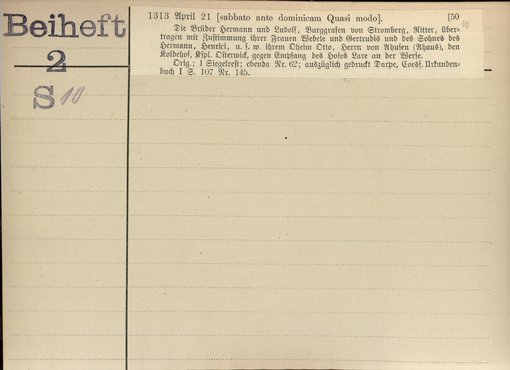 Beiheft
2
S 10
1313 April 21 [sabbato ante dominicam Quasi modo]. [50
Die Brüder Hermann und Ludolf, Burggrafen von Stromberg, Ritter, über-
tragen mit Zustimmung ihrer Frauen Webele und Gertrudis und des Sohnes des
Hermann, Henrici, u. s. w ihrem Oheim Otto, Herrn von Ahusen (Ahaus), den
Koldehof, Kspl. Osterwick, gegen Empfang des Hofes Lare an der Werse.
Orig.; 1 Siegelrest; ebenda Nr. 62; auszüglich gedruckt Darpe, Coesf. Urkunden-
buch I S. 107 Nr. 145.